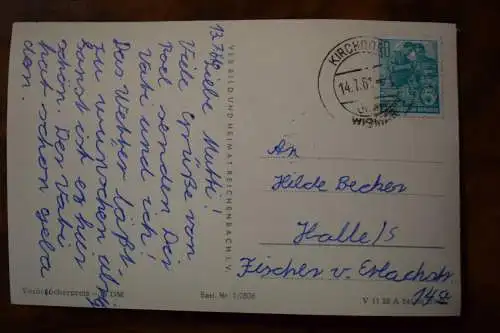 13.7.61
Liebe Mutti!
Viele Grüße von
Poel senden Dir
Vati und ich!
Das Wetter läßt
zu wünschen übrig
sonst ist es hier
schön. Der Vati
hat schon geba
den.
VEB BILD UND HEIMAT REICHENBACH I. V.
KIRCHDORF
14.7.61
WISMAR
An
Hilde Becker
Halle/S
Fischer v. Erlachstr.
14a
Best. Nr. 1/2606
V 11 28 A